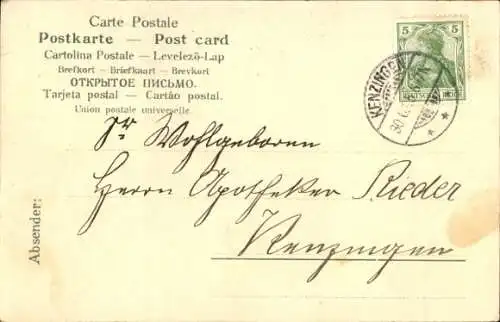 Carte Postale
Postkarte — Post card
Cartolina Postale — Levelező-Lap
Brefkort — Briefkaart — Brevkort
ОТКРЫТОЕ ПИСЬМО.
Tarjeta postal — Cartão postal.
Union postale universelle.
5 5
DEUTSCHES REICH
KENZINGEN
Sr Wohlgeboren
Herrn Apotheker Rieder
Kenzingen
Absender: